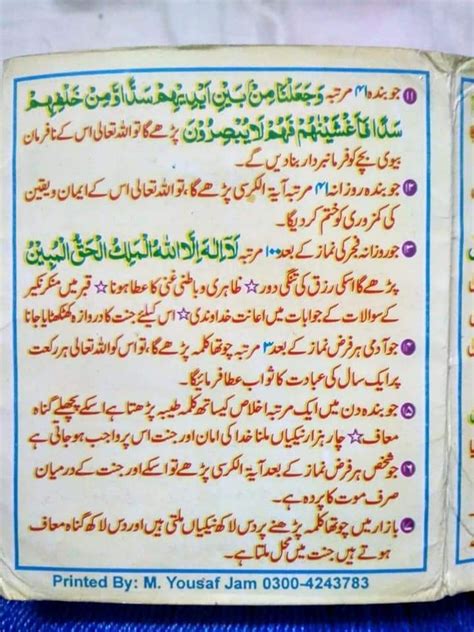 ۱۱ جو بندہ ۴۱ مرتبہ وَجَعَلْنَا مِنْۢ بَیْنِ اَیْدِیْهِمْ سَدًّا وَّمِنْ خَلْفِهِمْ
سَدًّا فَاَغْشَیْنٰهُمْ فَهُمْ لَا یُبْصِرُوْنَ پڑھے گا تو اللہ تعالی اس کے نافرمان
بیوی بچے کو فرمانبردار بنا دیں گے۔
۱۲ جو بندہ روزانہ ۴۱ مرتبہ آیۃ الکرسی پڑھے گا، تو اللہ تعالی اس کے ایمان و یقین
کی کمزوری کو ختم کر دیگا۔
۱۳ جو روزانہ فجر کی نماز کے بعد ۱۰۰ مرتبہ لَآ اِلٰهَ اِلَّا اللهُ الْمَلِكُ الْحَقُّ الْمُبِیْنُ
پڑھے گا اسکی رزق کی تنگی دور ☆ ظاہری و باطنی غنی کا عطا ہونا ☆ قبر میں منکر نکیر
کے سوالات کے جوابات میں اعانت خداوندی ☆ اس کیلئے جنت کا دروازہ کھٹکھٹایا جانا
۱۴ جو آدمی ہر فرض نماز کے بعد ۳ مرتبہ چوتھا کلمہ پڑھے گا، تو اس کو اللہ تعالی ہر رکعت
پر ایک سال کی عبادت کا ثواب عطا فرمائیگا۔
۱۵ جو بندہ دن میں ایک مرتبہ اخلاص کیساتھ کلمہ طیبہ پڑھتا ہے اسکے پچھلے گناہ
معاف ☆ چار ہزار نیکیاں ملنا خدا کی امان اور جنت اس پر واجب ہو جاتی ہے
۱۶ جو شخص ہر فرض نماز کے بعد آیۃ الکرسی پڑھے تو اسکے اور جنت کے درمیان
صرف موت کا پردہ ہے۔
۱۷ بازار میں چوتھا کلمہ پڑھنے پر دس لاکھ نیکیاں ملتی ہیں اور دس لاکھ گناہ معاف
ہوتے ہیں جنت میں محل ملتا ہے۔
Printed By: M. Yousaf Jam 0300-4243783